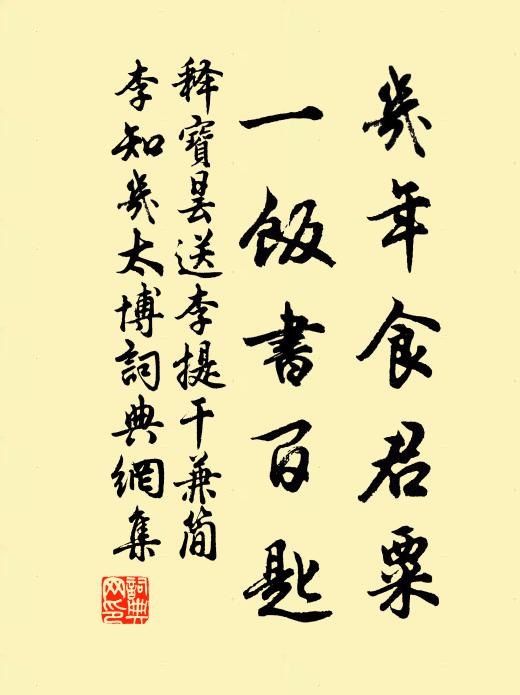 幾年食君粟
一飯書百匙
释寶曇送李提干兼简
李知幾太博詞典網集
詞典
网印